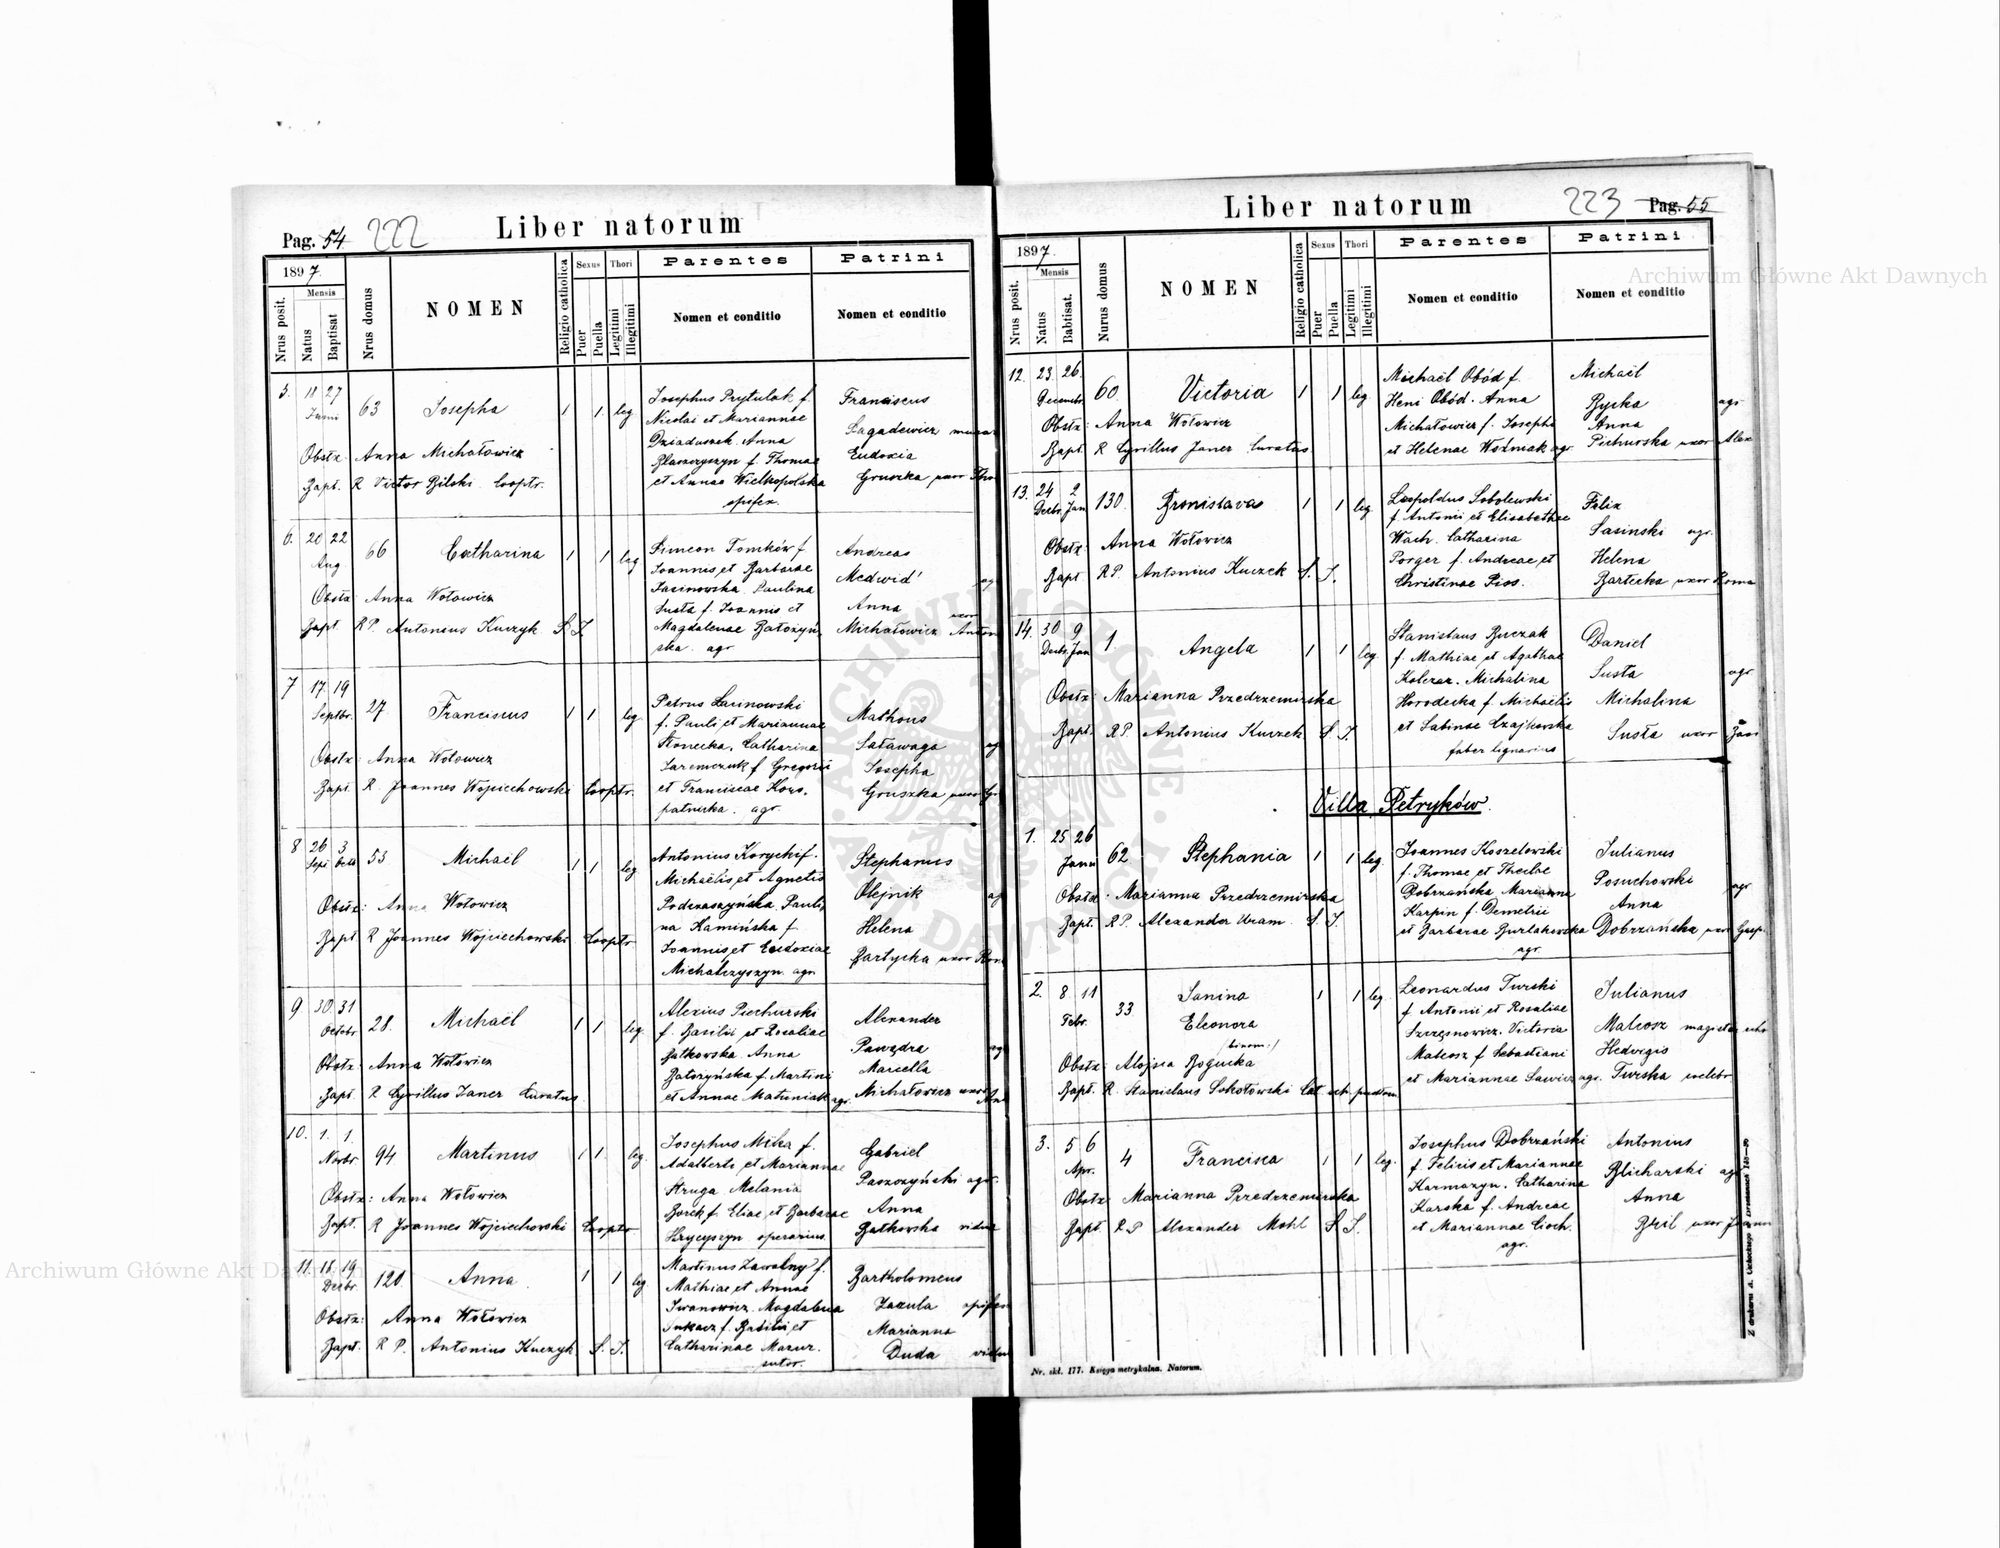 Pag. 54
222
Liber natorum
1897.
Nrus posit.
Mensis
Natus
Baptisat
Nrus domus
NOMEN
Religio catholica
Sexus
Puer
Puella
Thori
Legitimi
Illegitimi
Parentes
Nomen et conditio
Patrini
Nomen et conditio
5. 18 27 Junii 63 Josepha 1 1. leg
Josephus Prytulak f.
Nicolai et Mariannae
Dziaduszek. Anna
Błaszczyszyn f. Thomae
et Annae Wielkopolska
opifex.
Franciscus
Łagadewicz
Eudoxia
Gruszka uxor
Obstx Anna Michałowicz
Bapt. R Victor Bilski Cooptr.
6. 20 22 Aug 66 Catharina 1 1 leg
Simeon Tomków f
Joannis et Barbarae
Jasinowska. Paulina
Susta f. Joannis et
Magdalenae Batożyń
ska. agr
Andreas
Medwid'
Anna
Michałowicz uxor
Obstx Anna Wołowicz
Bapt. RP. Antonius Kuczyk S J
7 17. 19 Septbr. 27 Franciscus 1 1 leg
Petrus Lasinowski
f. Pauli et Mariannae
Słonecka. Catharina
Jaremczuk f. Gregorii
et Franciscae Koro.
patnicka. agr.
Matheus
Saławaga
Josepha
Gruszka uxor
Obstx: Anna Wołowicz
Bapt. R. Joannes Wojciechowski Cooptr.
8 26 3 Sept Octb 53 Michaël 1 1 leg
Antonius Korycki f.
Michaëlis et Agnetis
Podczaszyńska Pauli,
na Kamińska f.
Joannis et Eudoxiae
Michalczyszyn. agr
Stephanus
Olejnik
Helena
Bartycka uxor
Obstx: Anna Wołowicz
Bapt R Joannes Wojciechowski Cooptr
9. 30. 31 Octobr. 28. Michaël 1 1 leg.
Alexius Piechurski
f. Basilii et Rosaliae
Batkowska Anna
Batożyńska f. Martini
et Annae Matuniak agr.
Alexander
Pawędra
Marcella
Michałowicz uxor
Obstx: Anna Wołowicz
Bapt. R Cyrillus Janer Curatus
10. 1. 1. Novbr. 94 Martinus 1 1. leg
Josephus Mika f.
Adalberti et Mariannae
Struga Melania
Borek f. Eliae et Barbarae
Hrycyszyn operarius.
Gabriel
Paszczyński agr.
Anna
Batkowska vidua
Obstx: Anna Wołowicz
Bapt. R Joannes Wojciechowski Cooptr
11. 18. 19. Decbr. 120. Anna 1 1 leg
Martinus Zawalny f.
Mathiae et Annae
Iwanowicz. Magdalena
Łukacz f. Basilii et
Catharinae Mazur.
sutor.
Bartholomeus
Zazula opifex
Marianna
Duda vidua
Obstx: Anna Wołowicz
Bapt. R P. Antonius Kuczyk S. J.
Liber natorum
223
Pag. 55
1897.
Nrus posit.
Mensis
Natus
Babtisat.
Nurus domus
NOMEN
Religio catholica
Sexus
Puer
Puella
Thori
Legitimi
Illegitimi
Parentes
Nomen et conditio
Patrini
Nomen et conditio
12. 23. 26. Decembr 60. Victoria 1 1 leg
Michaël Obód f.
Heni Obód. Anna
Michałowicz f. Josepha
et Helenae Woźniak agr.
Michaël
Rycka agr
Anna
Pichurska uxor Alex
Obstx: Anna Wołowicz
Bapt. R Cyrillus Janer Curatus
13. 24 2 Decbr. Jan 130. Bronislava 1 1 leg.
Leopoldus Sobolewski
f. Antonii et Elisabethae
Wach. Catharina
Porger f. Andreae et
Christinae Piss.
Felix
Sasinski agr.
Helena
Bartecka uxor Roma
Obstx: Anna Wołowicz
Bapt RP. Antonius Kuczek S. J.
14. 30 9 Decbr. Jan 1. Angela 1 1 leg.
Stanislaus Burczak
f. Mathiae et Agathae
Kolczar. Michalina
Horodecka f. Michaëlis
et Sabinae Czajkowska
faber lignarius
Daniel
Susta agr
Michalina
Susta uxor
Obstx: Marianna Przedrzemirska
Bapt. RP. Antonius Kuczek S. J.
Villa Petryków.
1. 25 26 Janu 62 Stephania 1 1 leg.
Joannes Koszelowski
f. Thomae et Theclae
Dobrzańska Marianna
Karpin f. Demetrii
et Barbarae Burlakowska
agr.
Julianus
Posuchowski agr
Anna
Dobrzańska uxor Gasp.
Obstx: Marianna Przedrzemirska
Bapt. RP. Alexander Uram. S. J.
2. 8 11 Febr. 33 Janina 1 1 leg.
Eleonora
/binom./
Leonardus Turski
f Antonii et Rosaliae
Szczęsnowicz. Victoria
Mateosz f Sebastiani
et Mariannae Sawicz agr.
Julianus
Mateosz magister
Hedvigis
Turska celebr
Obstx: Alojsia Bogucka
Bapt. R. Stanislaus Sokołowski Cat.
3. 5 6 Apr. 4 Francisca 1 1 leg.
Josephus Dobrzański
f. Felicis et Mariannae
Karmazyn. Catharina
Karska f. Andreae
et Mariannae Cioch.
agr.
Antonius
Blicharski agr
Anna
Bril uxor Joann
Obstx Marianna Przedrzemirska
Bapt. R P Alexander Mohl S J.
Nr. skł. 177. Księga metrykalna. Natorum.
Archiwum Główne Akt Dawnych
Archiwum Główne Akt Dawnych
ARCHIWUM GŁÓWNE AKT DAWNYCH